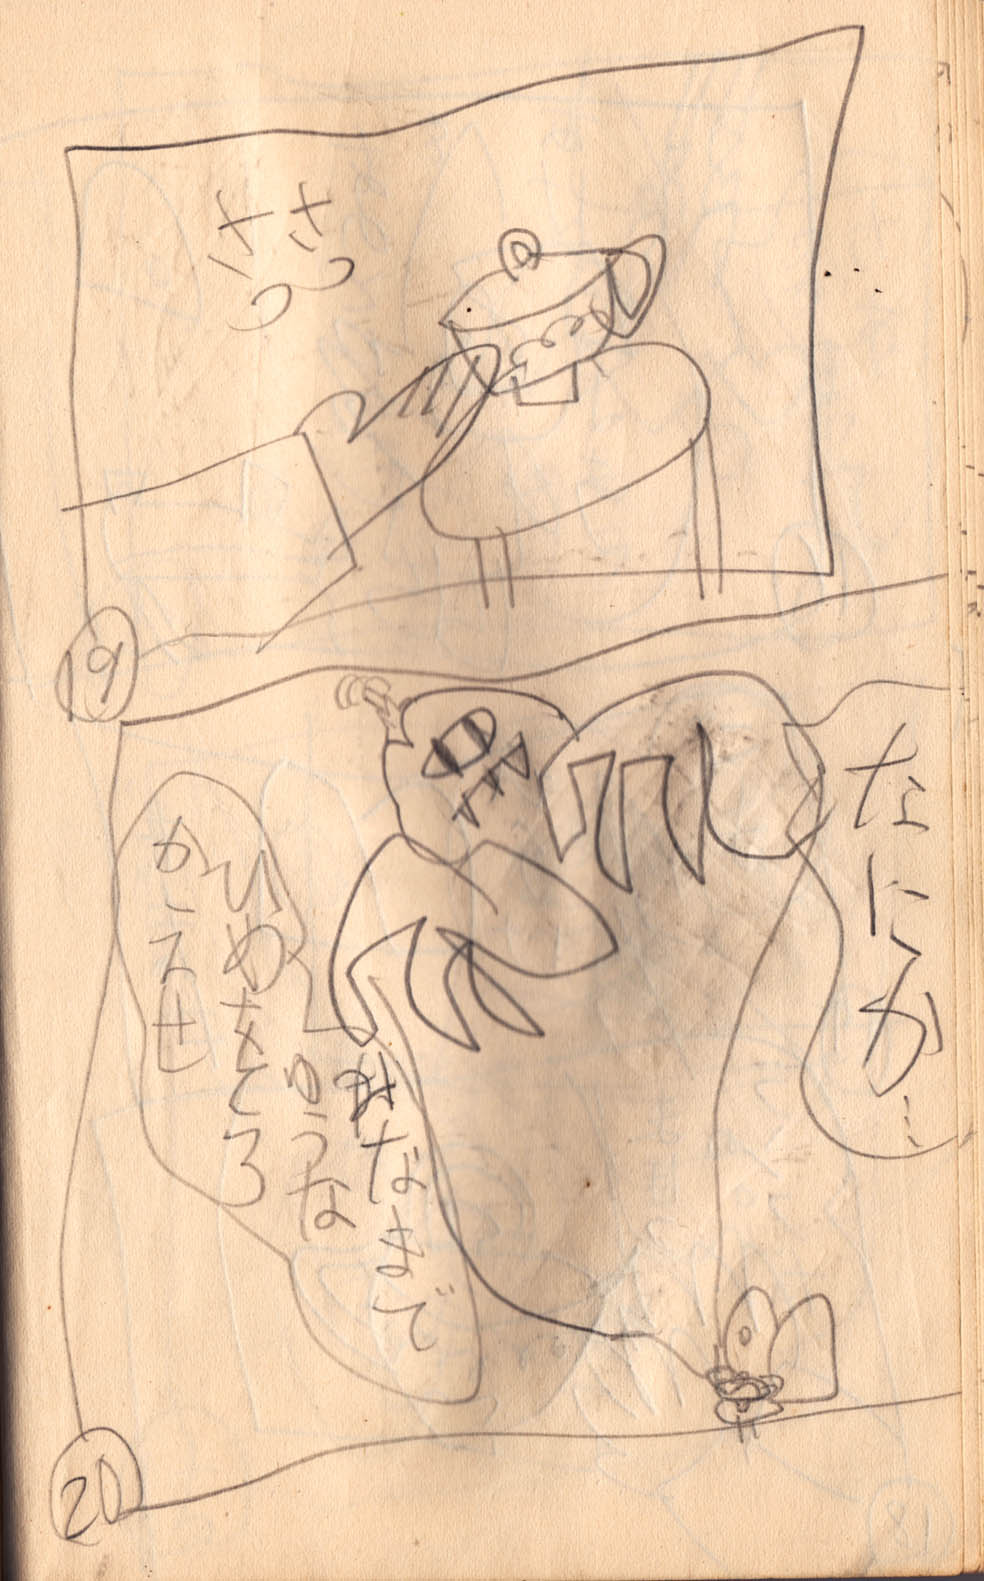 ささ
19
なにか…
あだなまで
ゆうな
ひめを
かえせ
20